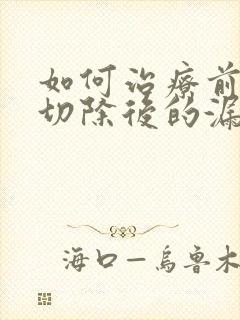 如何治療前
切除後的漏
海口—烏魯木